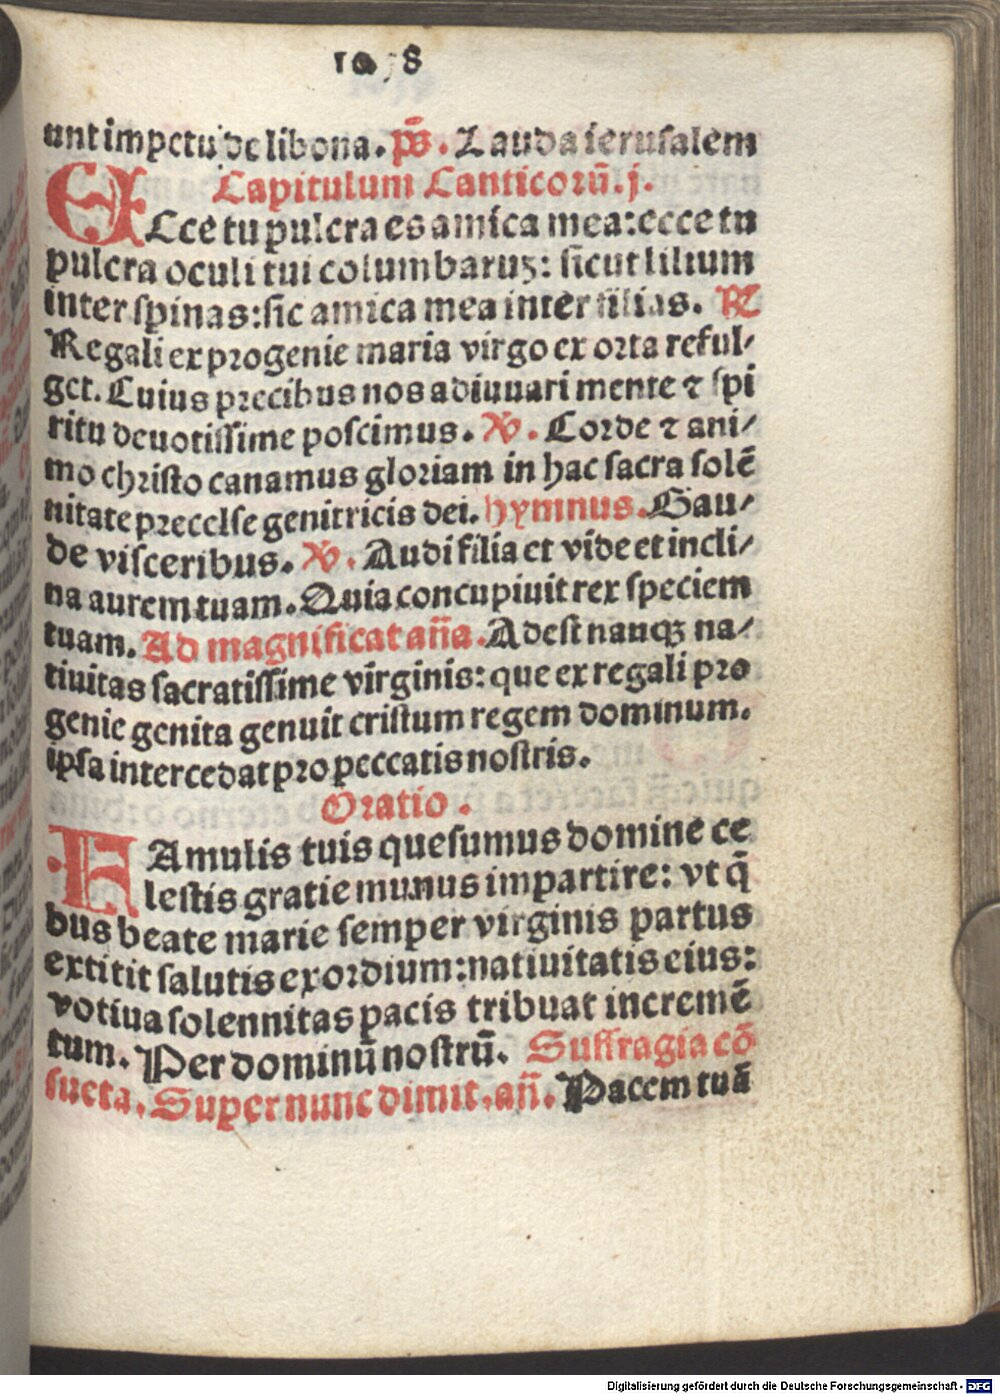 unt impetu de libona. ps̄. Lauda ierusalem
Capitulum Canticorū. j.
ECce tu pulcra es amica mea: ecce tu
pulcra oculi tui columbaruꝫ: sicut lilium
inter spinas: sic amica mea inter filias. ℟
Regali ex progenie maria virgo ex orta reful⸗
get. Cuius precibus nos adiuuari mente ⁊ spi
ritu deuotissime poscimus. ℣. Corde ⁊ ani⸗
mo christo canamus gloriam in hac sacra solē
nitate precelse genitricis dei. hymnus. Gau⸗
de visceribus. ℣. Audi filia et vide et incli⸗
na aurem tuam. Quia concupiuit rex speciem
tuam. Ad magnificat an̄a. Adest nanqꝫ na⸗
tiuitas sacratissime virginis: que ex regali pro
genie genita genuit cristum regem dominum.
ipsa intercedat pro peccatis nostris.
Oratio.
FAmulis tuis quesumus domine ce
lestis gratie munus impartire: vt q̄
bus beate marie semper virginis partus
extitit salutis exordium: natiuitatis eius:
votiua solennitas pacis tribuat incremē
tum. Per dominū nostrū. Suffragia cō
sueta. Super nunc dimit. an̄. Pacem tuā
Digitalisierung gefördert durch die Deutsche Forschungsgemeinschaft - DFG